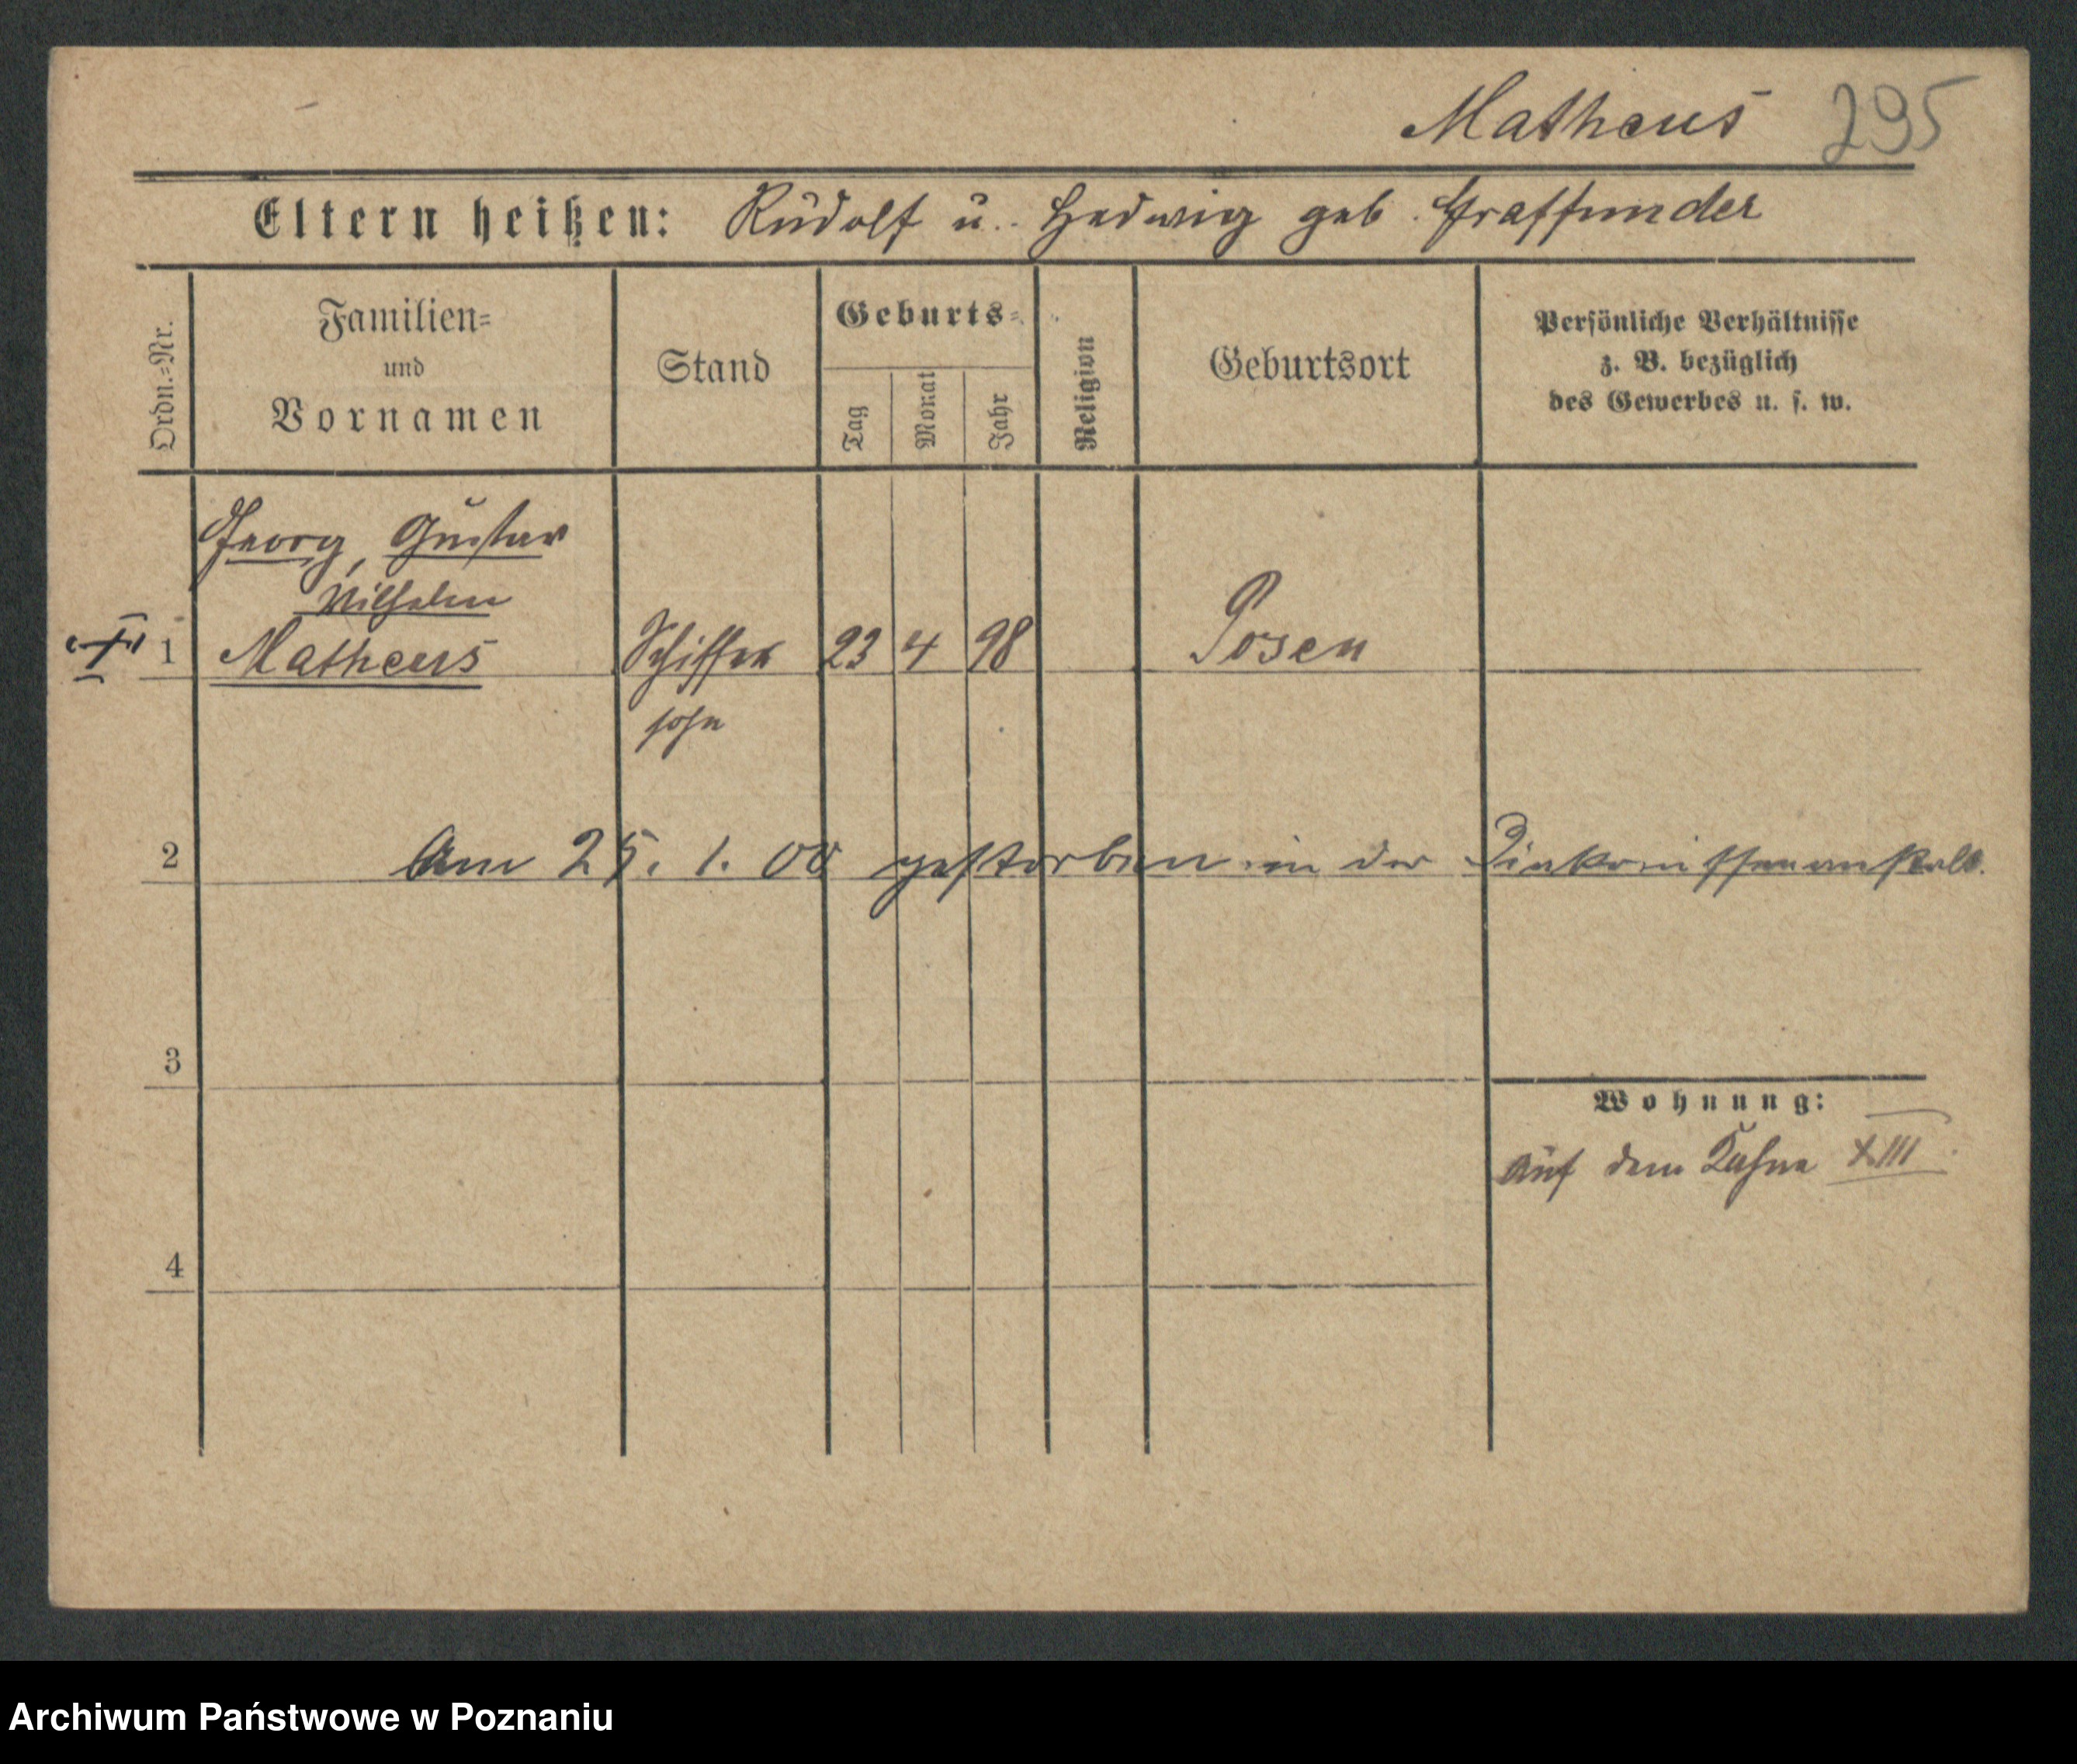 Matheus 295
Eltern heißen: Rudolf u. Hedwig geb. Graffunder
Ordn.-Nr.
Familien-
und
Vornamen
Stand
Geburts-
Tag
Monat
Jahr
Religion
Geburtsort
Persönliche Verhältnisse
z. B. bezüglich
des Gewerbes u. s. w.
Georg, Gustav
Wilhelm
1 Matheus Schiffer 23 4 98 Posen
sohn
2 Am 25. 1. 00 gestorben in der Diakonissenanstalt.
3
Wohnung:
auf dem Kahne XIII
4
Archiwum Państwowe w Poznaniu